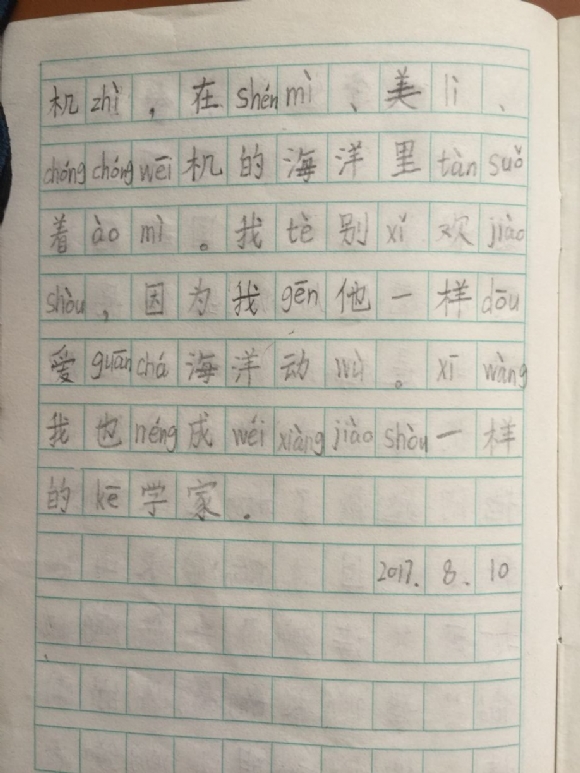 机zhì，在shénmì、美lì、
chóngchóngwēi机的海洋里tànsuǒ
着àomì。我tè别xǐ欢jiào
shòu，因为我gēn他一样dōu
爱guānchá海洋动wù。xīwàng
我也néng成wéixiàngjiàoshòu一样
的kē学家.
2017.8.10